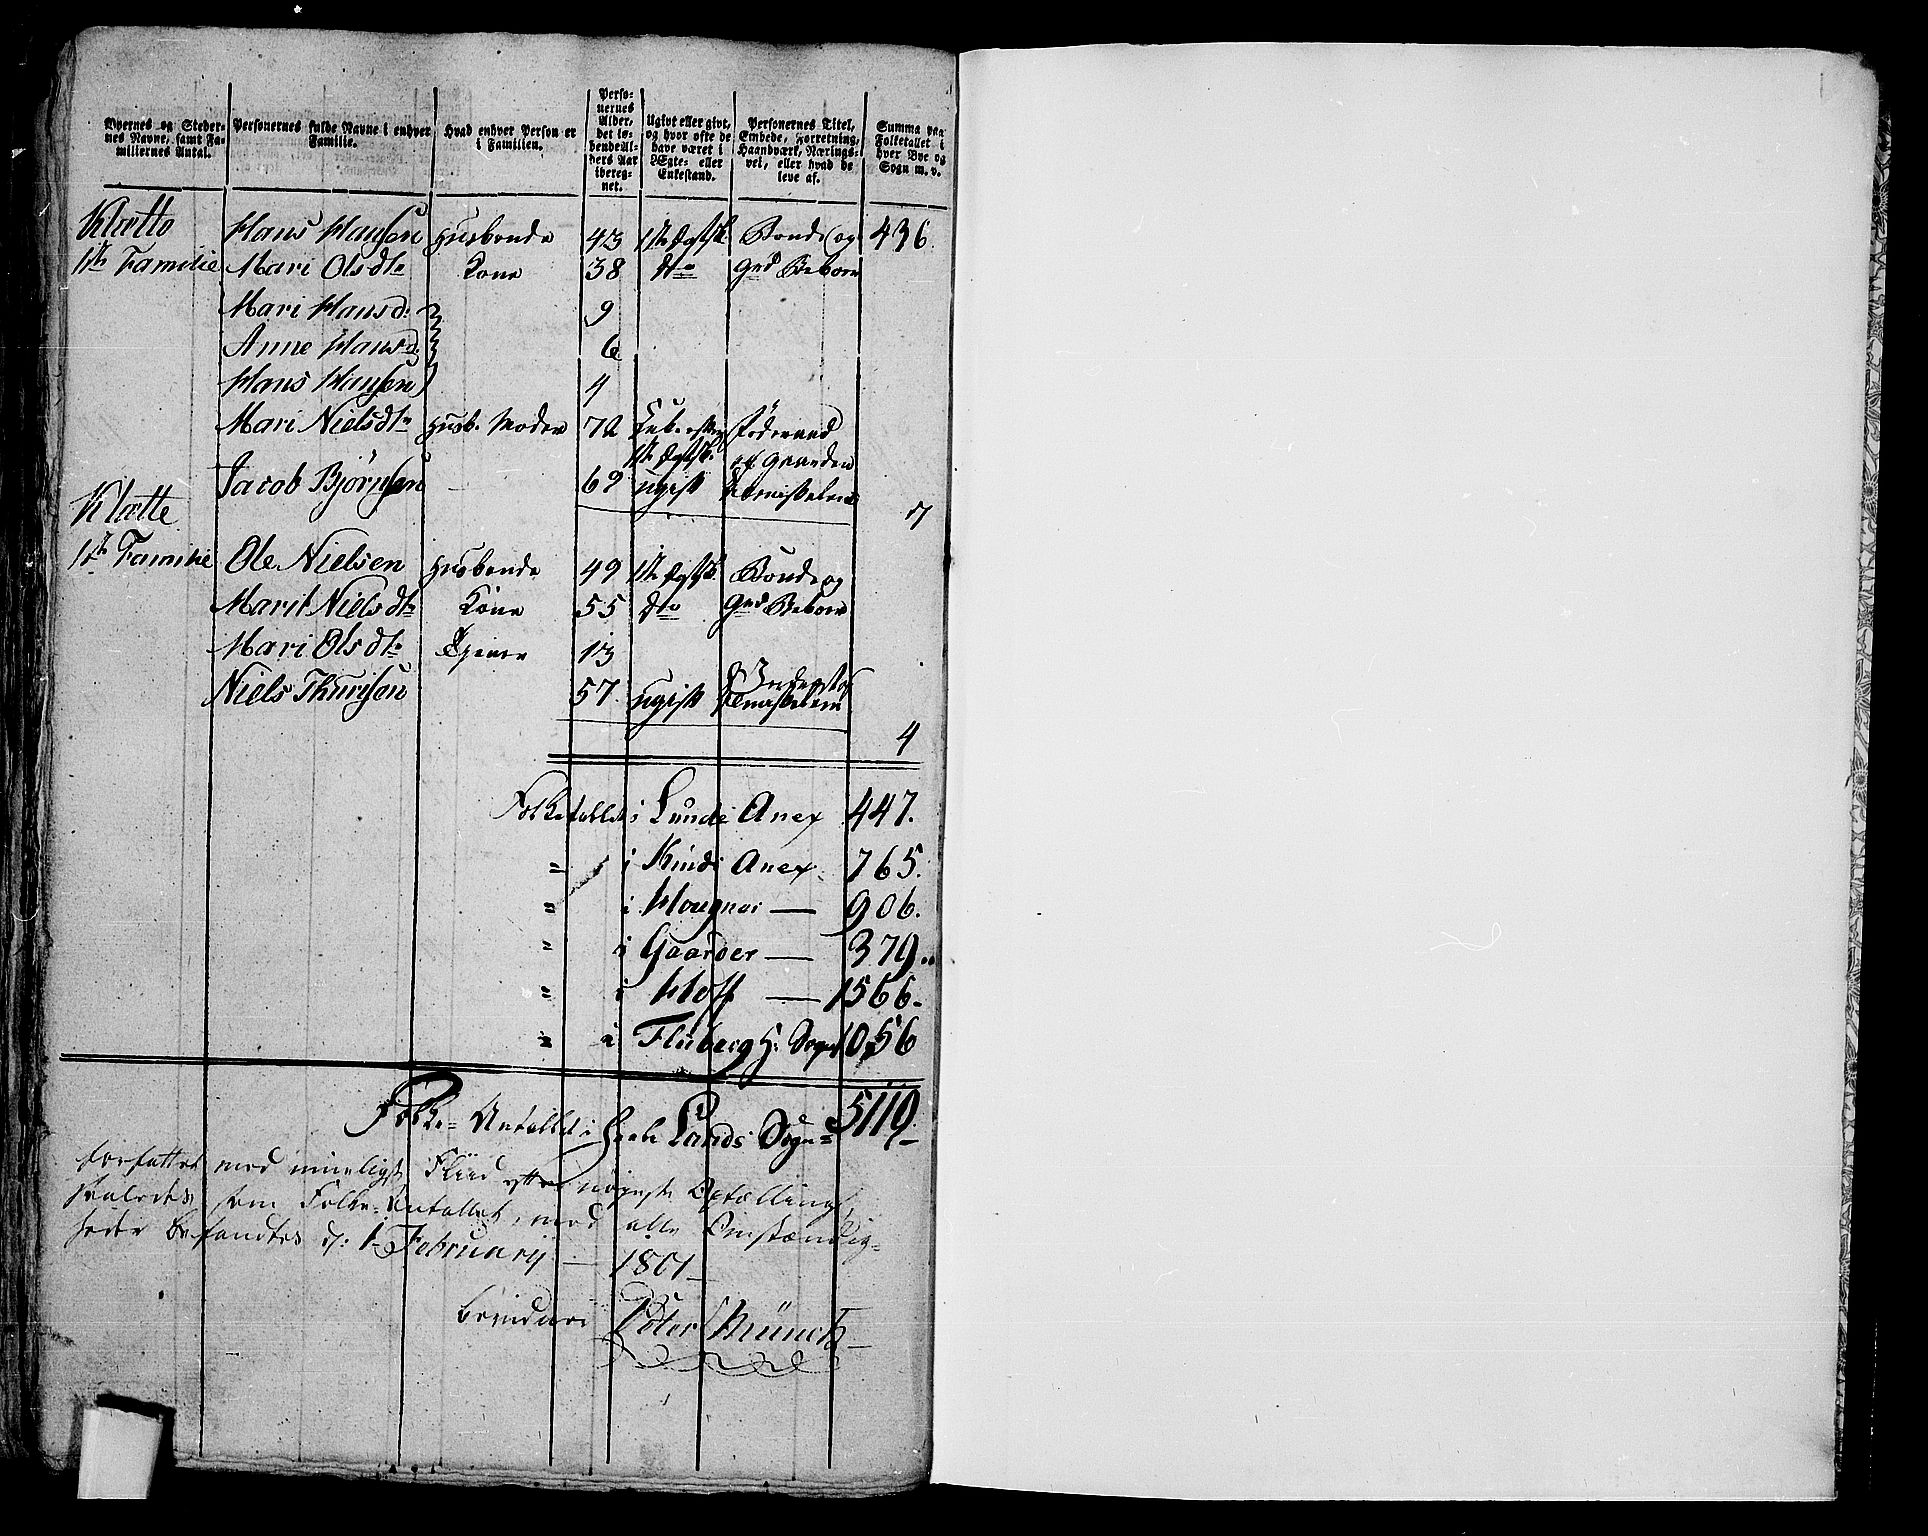 Byernes og Steder-nes Navne, samt Fa-milliernes Antal. | Personernes fulde Navne i enhver Familie. | Hvad enhver Person er i Familien. | Perso-nernes Alder, det lø-bende Al-ders Aar ibereg-net. | Ugivt eller givt, og hvor ofte de have været i Ægte- eller Enkestand. | Personernes Titel, Embede, Forretning, Haandværk, Nærings-vei, eller hvad de leve af. | Summa paa Folketallet i hver Bye og Sogn m. v.
Klætte Hans Hansen Husbonde 43 1ste Ægtsk. Bonde og 436.
1te Familie Mari Olsdtr Kone 38 dto Grd Beboer
Mari Hansd. 9
Anne Hansd. 6
Hans Hansen 4
Mari Nielsdtr Husb. Moder 72 Enke efter Føderaad
1ste Ægtsk. af Gaarden
Jacob Bjørnsen 69 ugift
7
Klætte
1te Familie Ole Nielsen Husbonde 49 1ste Ægtsk. Bonde og
Marit Nielsdtr Kone 55 dto Grd Beboer
Mari Olsdtr 13
Niels Thurisen 57 ugift
4
Folketallet i Lunde Anex 447.
" i Kinds Anex 765.
" i Hougner — 906.
" i Gaarder — 379..
" i Hoff — 1566.
" i Fluberg H: Sogn 1056
Folke-Antallet i heele Lands Sogn = 5119.
forfattet med mueligst Fliid efter nøyeste Optælling,
saaledes som Folke-Antallet, med alle Omstændig-
heder befandtes d: 1 February — 1801 —
Peter Münch